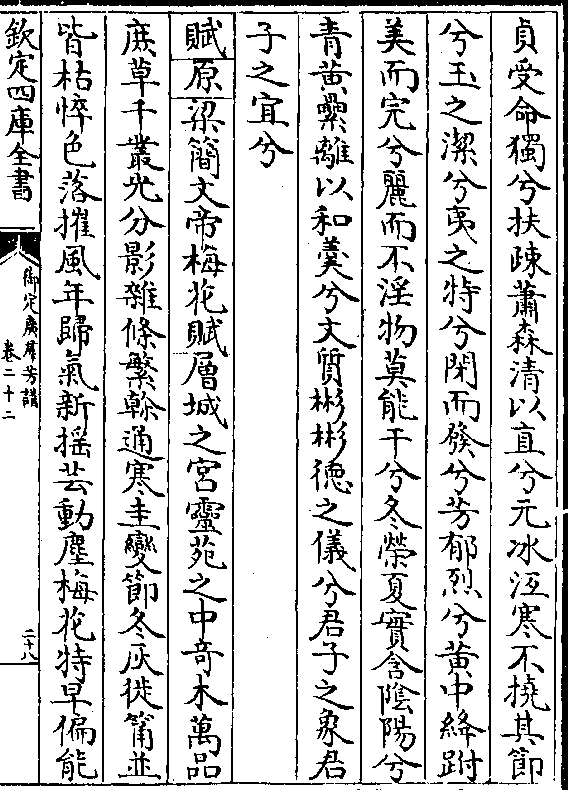 貞受命獨兮扶疎蕭森清以直兮元冰沍寒不撓其節
兮玉之潔兮夷之特兮閉而發兮芳郁烈兮黄中絳跗
美而完兮麗而不淫物莫能干兮冬榮夏實含陰陽兮
青黄纍離以和羮兮文質彬彬德之儀兮君子之象君
子之宜兮
賦原梁簡文帝梅花賦層城之宮靈苑之中竒木萬品
庶草千叢光分影雜條繁榦通寒圭變節冬灰徙筩並
皆枯悴色落摧風年歸氣新揺芸動塵梅花特早偏能
欽定四庫全書
御定廣羣芳譜
卷二十二
二十八